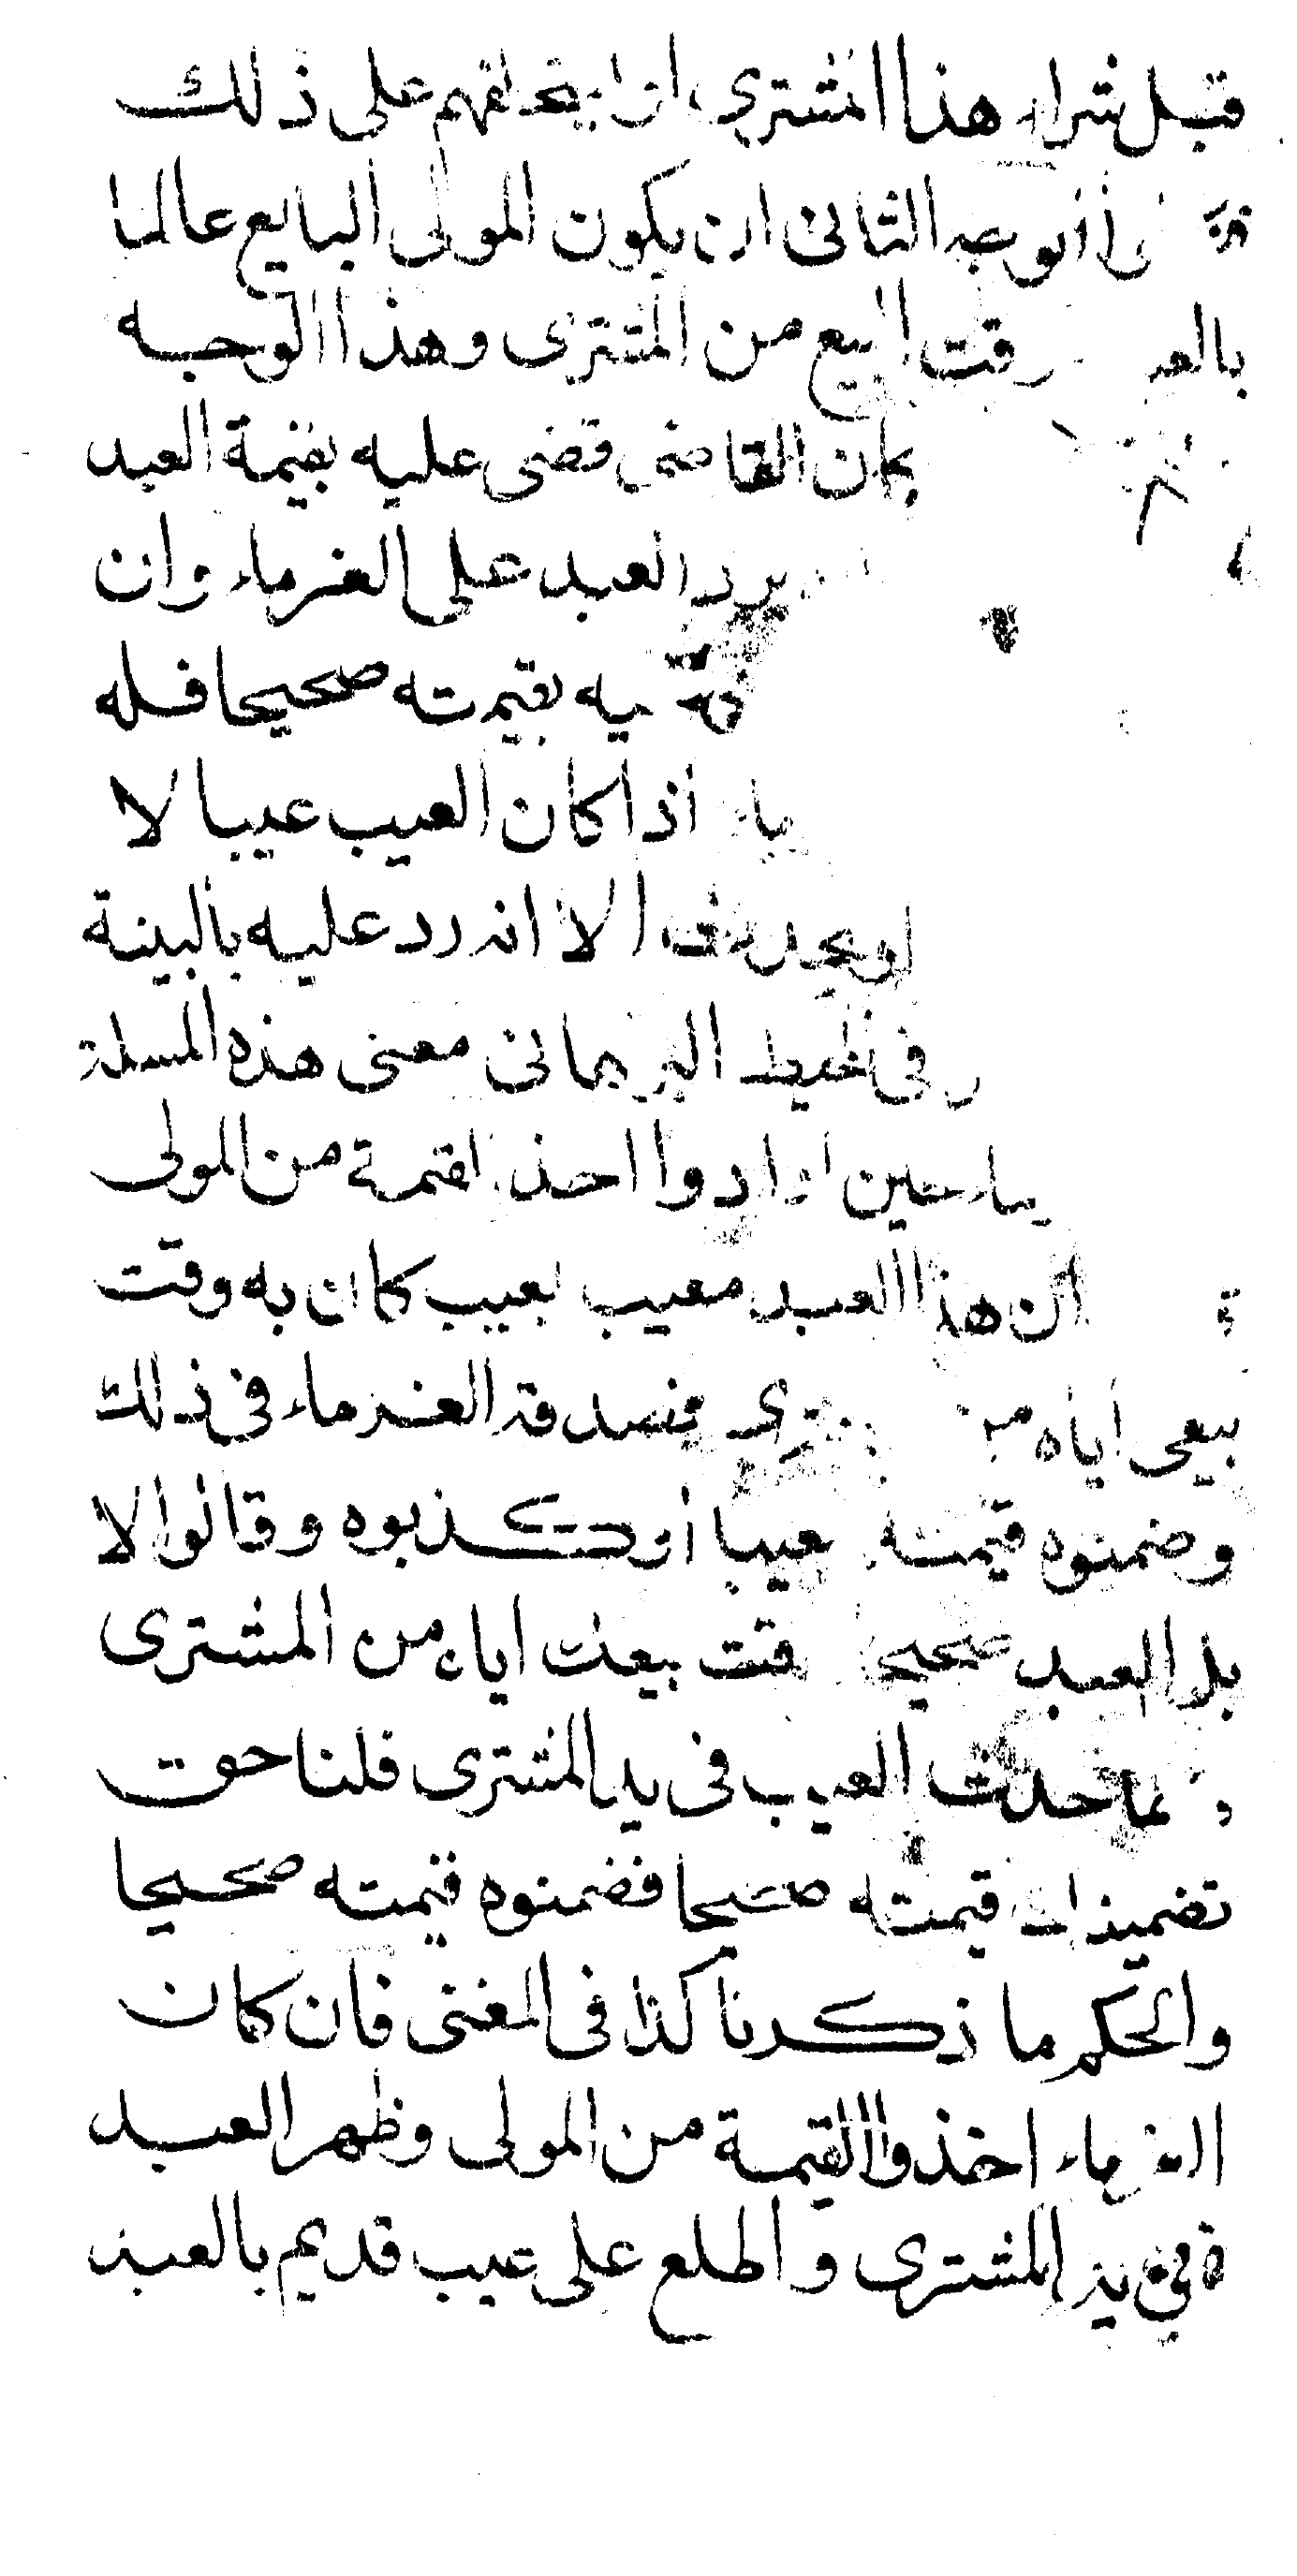 قبل شراء هذا المشتري على ذلك
الثاني ان يكون المولى البايع عالما
وقت البيع من المشترى وهذا الوجه
كان القاضى قضى عليه بقيمة العبد
يرد العبد على الغرماء وان
عليه بقيمته صحيحا فله
اذا كان العيب عيبا لا
يحدث الا انه رد عليه بالبينة
وفى المحيط البرهانى معنى هذه المسلة
حين ارادوا اخذ القيمة من المولى
ان هذا العبد معيب بعيب كان به وقت
بيعى اياه من المشترى فصدقه الغرماء فى ذلك
وضمنوه قيمته معيبا او كذبوه وقالوا لا
بل العبد صحيح وقت بيعك اياه من المشترى
وانما حدث العيب فى يد المشترى فلنا حق
تضمينك قيمته صحيحا فضمنوه قيمته صحيحا
والحكم ما ذكرنا كذا فى المغنى فان كان
الغرماء اخذوا القيمة من المولى وظهر العبد
فى يد المشترى واطلع على عيب قديم بالعبد